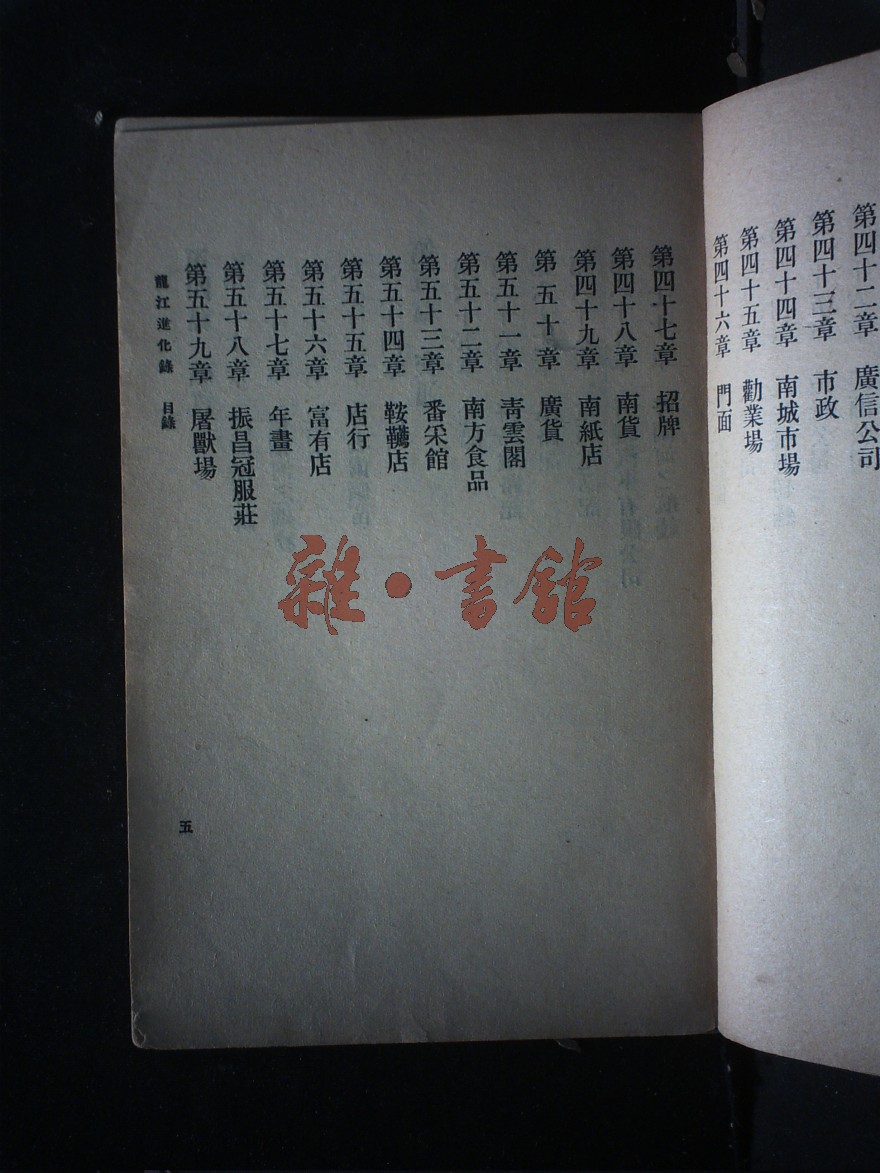 第四十二章 廣信公司
第四十三章 市政
第四十四章 南城市場
第四十五章 勸業場
第四十六章 門面
第四十七章 招牌
第四十八章 南貨
第四十九章 南紙店
第五十章 廣貨
第五十一章 靑雲閣
第五十二章 南方食品
第五十三章 番采館
第五十四章 鞍韉店
第五十五章 店行
第五十六章 富有店
第五十七章 年畫
第五十八章 振昌冠服莊
第五十九章 屠獸場
龍江進化錄 目錄
五
雜·書館